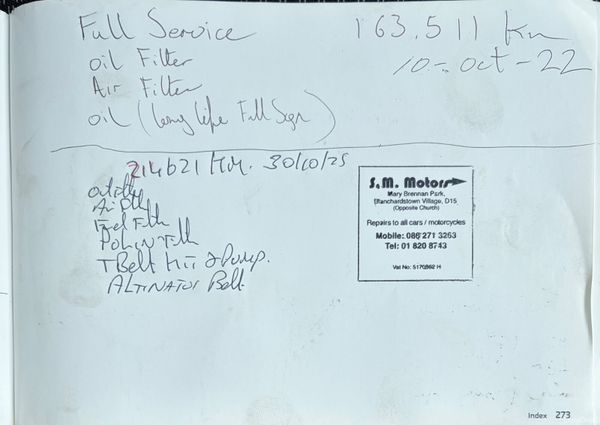 Full Service 163,511 km
oil Filter 10-oct-22
Air Filter
oil (long life Full Syn)
214621 KM. 30/10/25
Air
Fuel
Polin
T Belt Kit & Pump.
ALTINATOR Belt
S.M. Motors
Mary Brennan Park,
Blanchardstown Village, D15
(Opposite Church)
Repairs to all cars / motorcycles
Mobile: 086 271 3263
Tel: 01 820 8743
Vat No: 5170862 H
Index 273